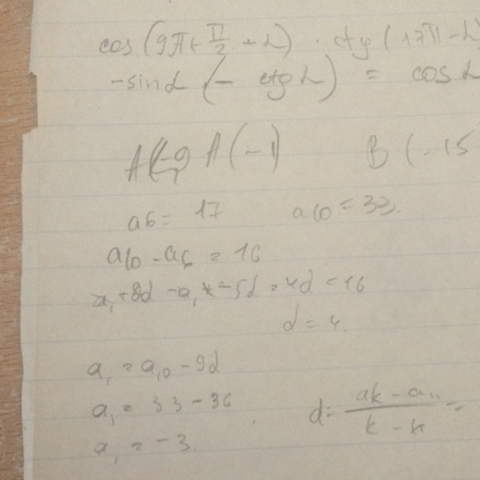 cos (9π + π/2 + α) · ctg (17π - α)
-sinα (- ctg α) = cos α
A (-1) B (-15
a6 = 17 a10 = 33.
a10 - a6 = 16
a1 + 9d - a1 - 5d = 4d = 16
d = 4.
a1 = a10 - 9d
a1 = 33 - 36 d = (ak - an)/(k - n) =
a1 = -3.